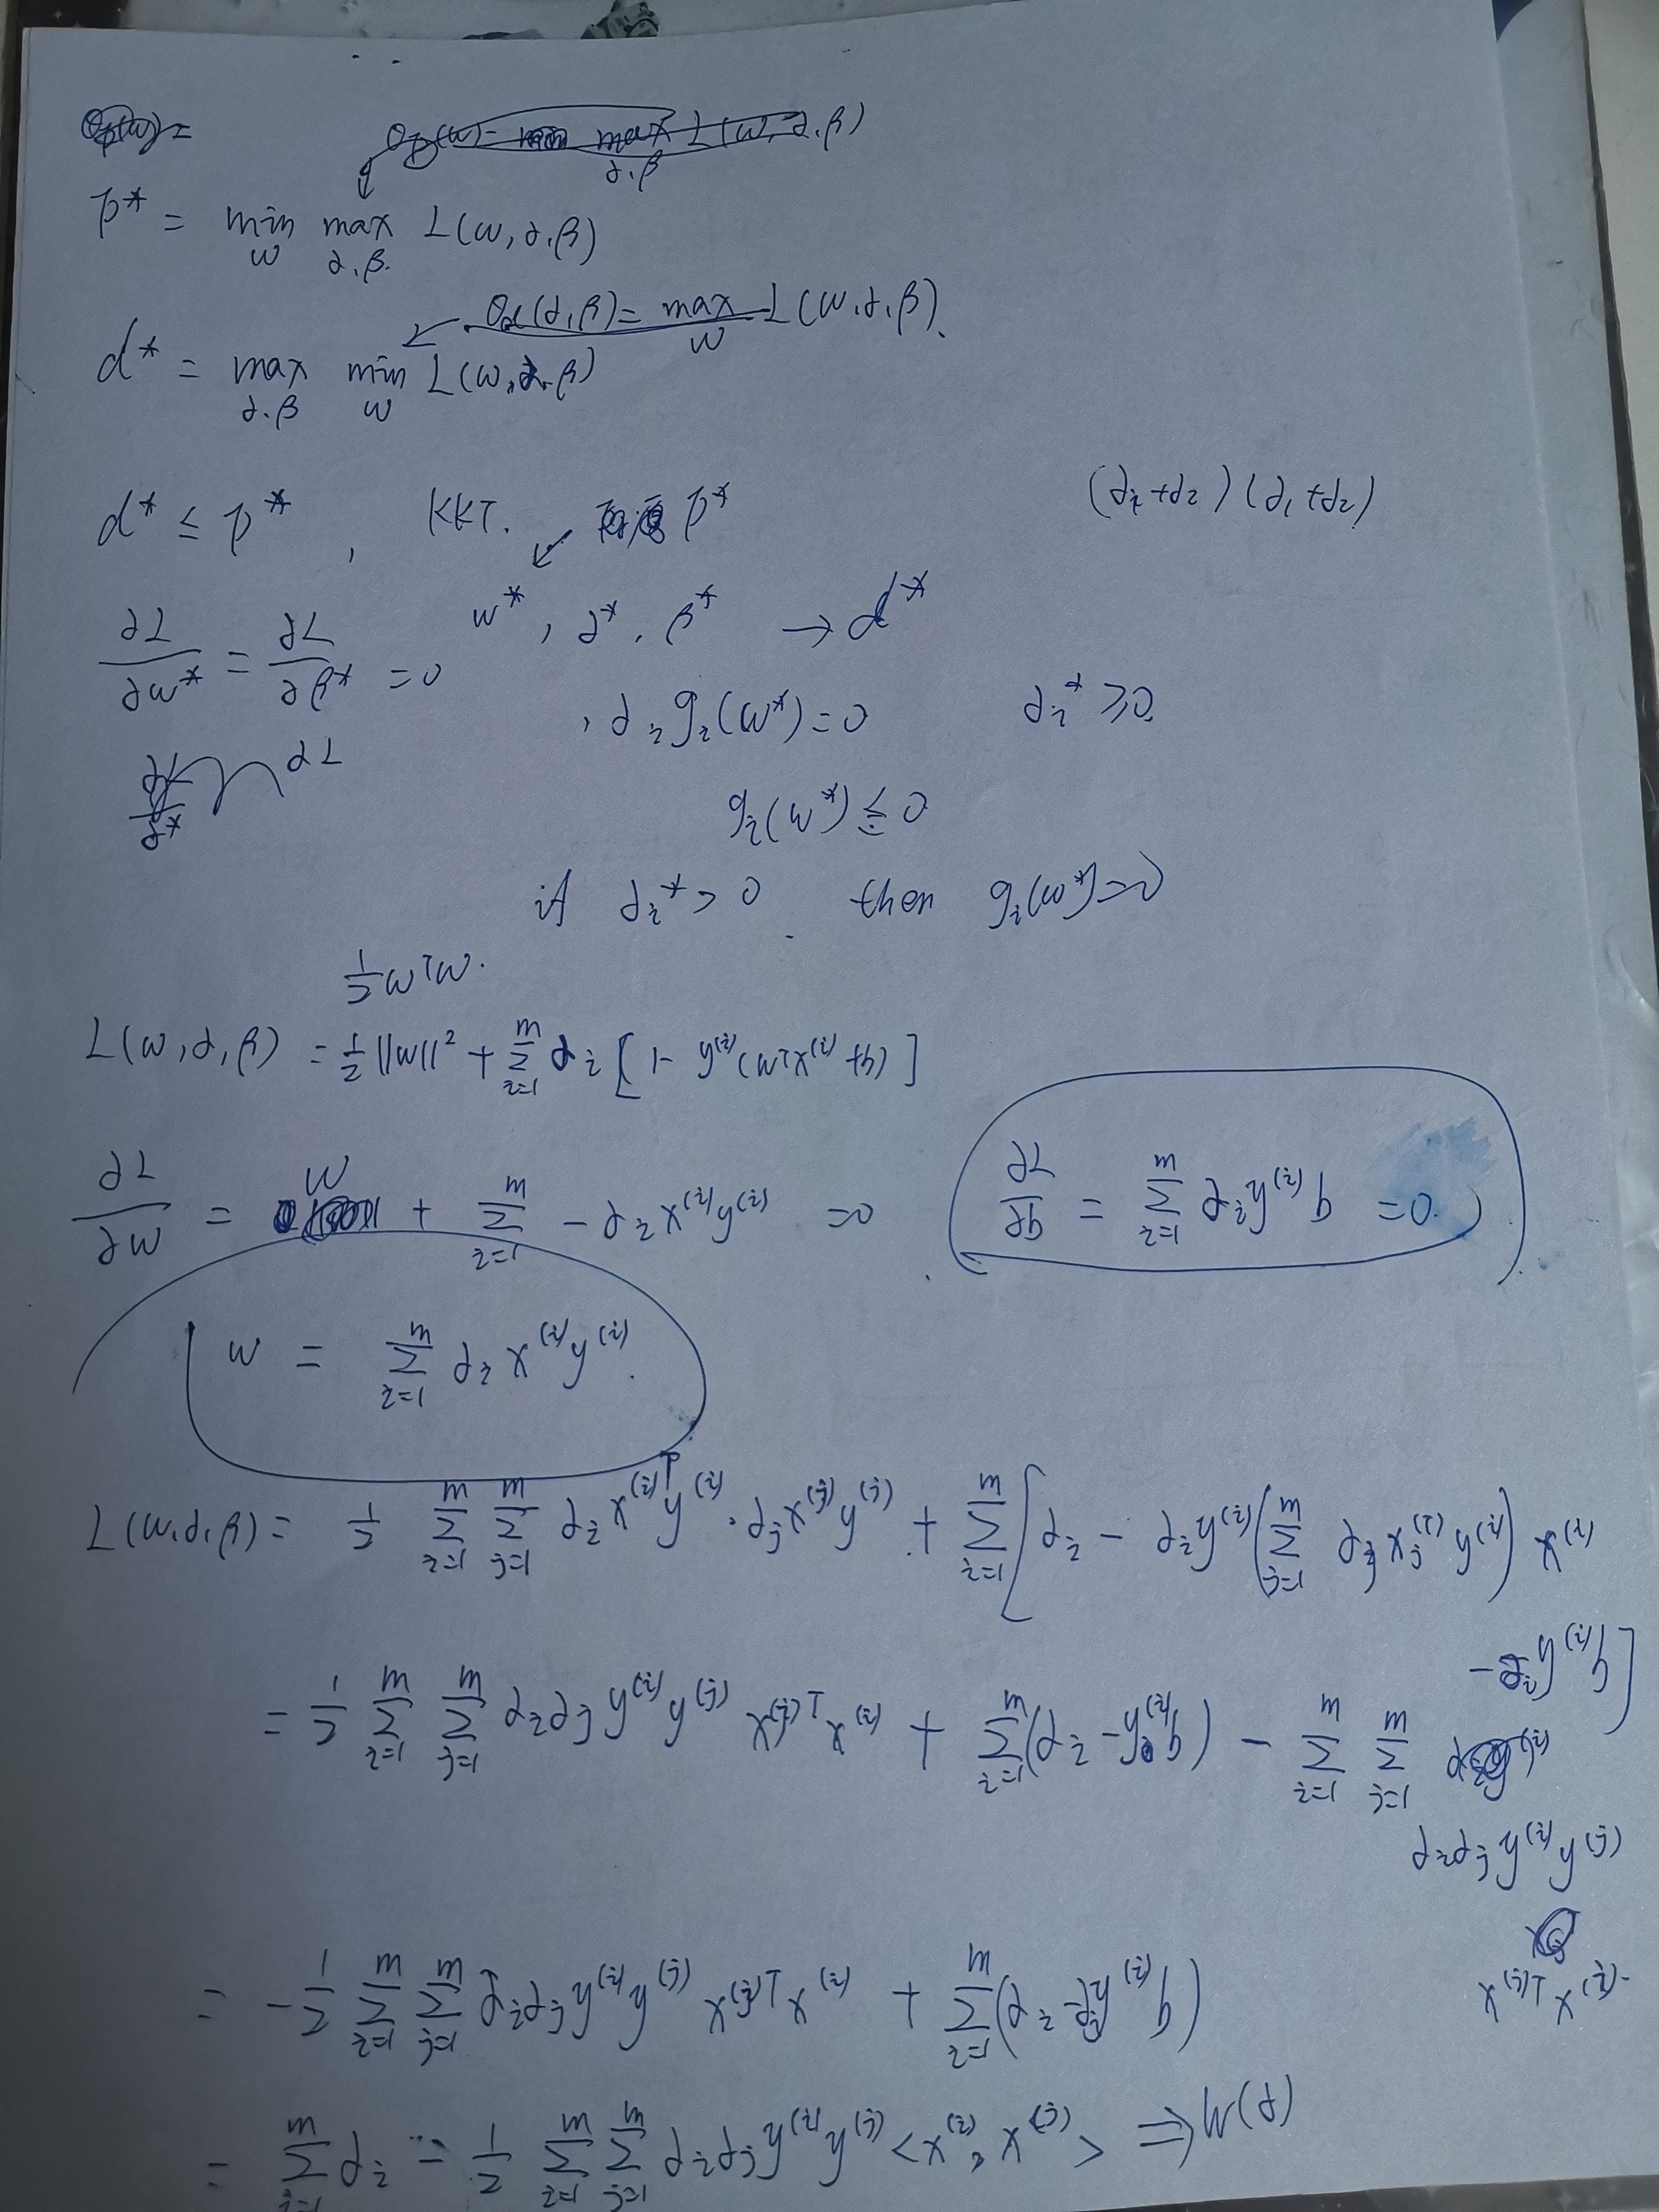 θ_p(w) =
θ_p(w) = min max_{α,β} L(w,α,β)
p* = min_w max_{α,β} L(w,α,β)
θ_d(α,β) = max_w L(w,α,β).
d* = max_{α,β} min_w L(w,α,β)
(α_i+α_2)(α_1+α_2)
d* ≤ p* , KKT. p*
w*, α*, β* → d*
∂L/∂w* = ∂L/∂β* = 0
, α_i g_i(w*) = 0 α_i* ≥ 0
∂L
g_i(w*) ≤ 0
if α_i* > 0 then g_i(w*) = 0
1/2 wᵀw.
L(w,α,β) = 1/2 ||w||² + Σ_{i=1}^m α_i [1 - y^(i)(wᵀx^(i) + b)]
∂L/∂w = w + Σ_{i=1}^m - α_i x^(i) y^(i) = 0
∂L/∂b = Σ_{i=1}^m α_i y^(i) b = 0.
w = Σ_{i=1}^m α_i x^(i) y^(i).
L(w,α,β) = 1/2 Σ_{i=1}^m Σ_{j=1}^m α_i x^(i)ᵀ y^(i) · α_j x^(j) y^(j) + Σ_{i=1}^m [α_i - α_i y^(i) (Σ_{j=1}^m α_j x_j^(T) y^(i)) x^(i)
- α_i y^(i) b]
= 1/2 Σ_{i=1}^m Σ_{j=1}^m α_i α_j y^(i) y^(j) x^(j)ᵀ x^(i) + Σ_{i=1}^m (α_i - y^(i) b) - Σ_{i=1}^m Σ_{j=1}^m
α_i α_j y^(i) y^(j)
x^(j)ᵀ x^(i).
= - 1/2 Σ_{i=1}^m Σ_{j=1}^m α_i α_j y^(i) y^(j) x^(j)ᵀ x^(i) + Σ_{i=1}^m (α_i - α_i y^(i) b)
= Σ_{i=1}^m α_i - 1/2 Σ_{i=1}^m Σ_{j=1}^m α_i α_j y^(i) y^(j) <x^(i), x^(j)> ⇒ W(α)